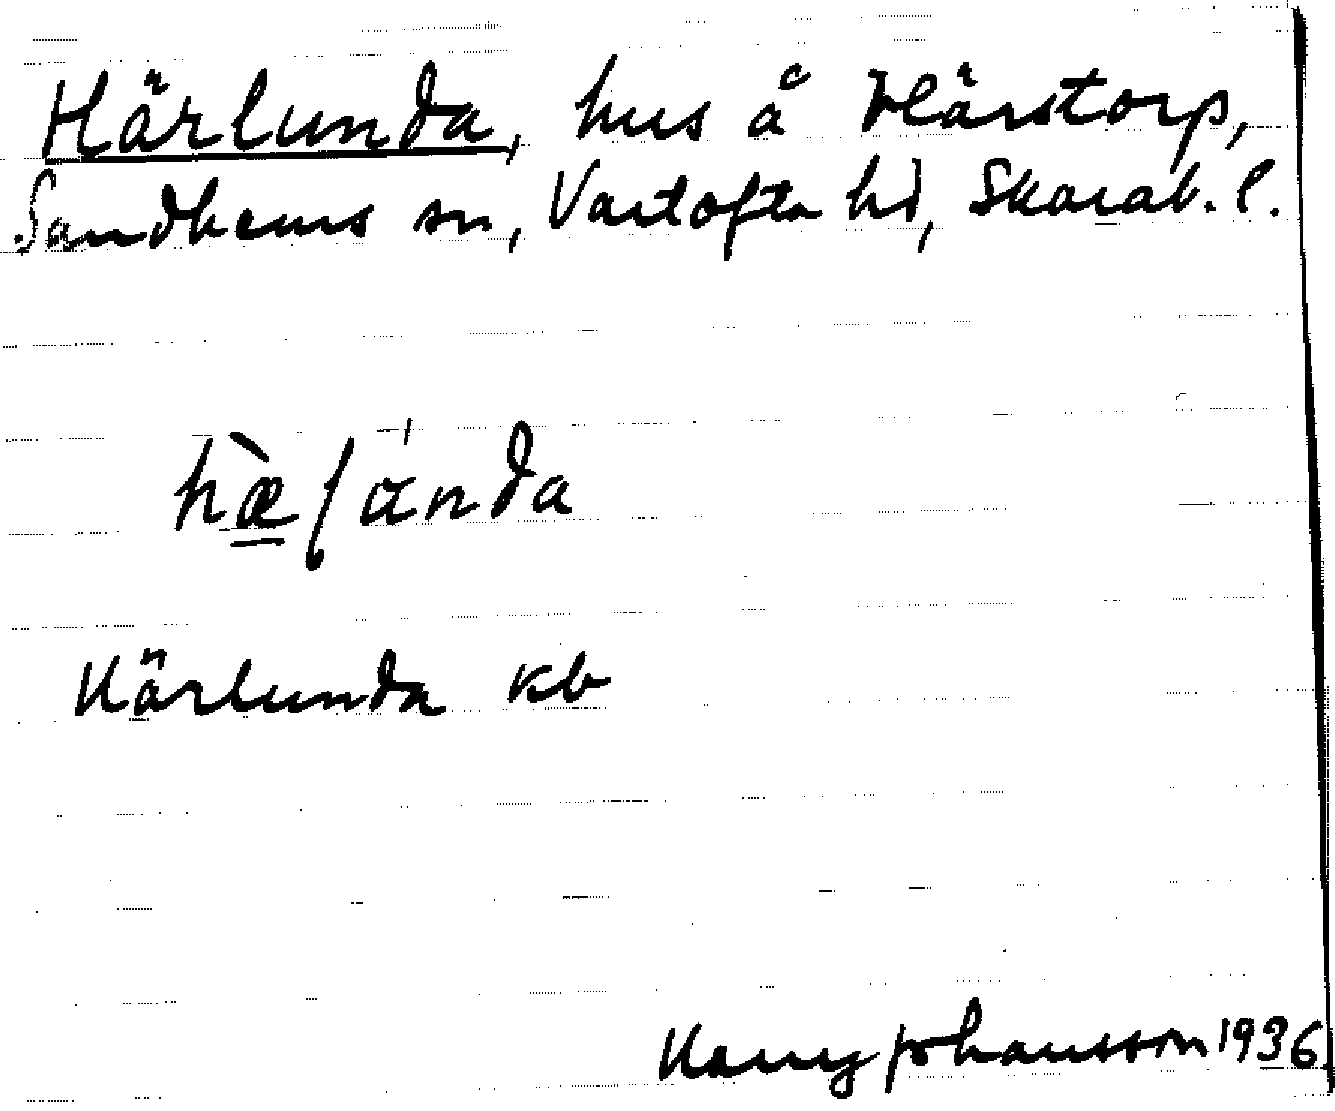 Härlunda, hus å Härstorp,
Sandhems sn, Vartofta hd, Skarab. l.
hæ̀lánda
Härlunda kb
Harry Johansson 1936.